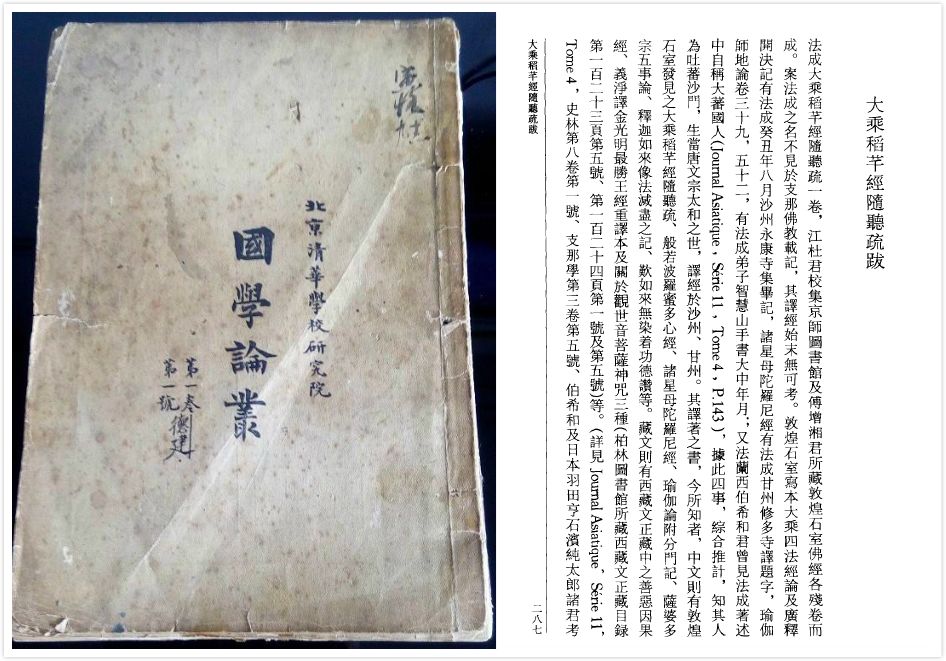 北京清華學校研究院
國學論叢
第一卷
第一號
德建
大乘稻芉經隨聽疏跋
法成大乘稻芉經隨聽疏一卷，江杜君校集京師圖書館及傅增湘君所藏敦煌石室佛經各殘卷而
成。案法成之名不見於支那佛教載記，其譯經始末無可考。敦煌石室寫本大乘四法經論及廣釋
開決記有法成癸丑年八月沙州永康寺集畢記，諸星母陀羅尼經有法成甘州修多寺譯題字，瑜伽
師地論卷三十九，五十二，有法成弟子智慧山手書大中年月；又法蘭西伯希和君曾見法成著述
中自稱大蕃國人(Journal Asiatique，Série 11，Tome 4，P.143)，據此四事，綜合推計，知其人
為吐蕃沙門，生當唐文宗太和之世，譯經於沙州、甘州。其譯著之書，今所知者，中文則有敦煌
石室發見之大乘稻芉經隨聽疏、般若波羅蜜多心經、諸星母陀羅尼經、瑜伽論附分門記、薩婆多
宗五事論、釋迦如來像法滅盡之記、歎如來無染着功德讚等。藏文則有西藏文正藏中之善惡因果
經、義淨譯金光明最勝王經重譯本及關於觀世音菩薩神咒三種(柏林圖書館所藏西藏文正藏目錄
第一百二十三頁第五號、第一百二十四頁第一號及第五號)等。(詳見 Journal Asiatique，Série 11，
Tome 4，史林第八卷第一號、支那學第三卷第五號、伯希和及日本羽田亨石濱純太郎諸君考
大乘稻芉經隨聽疏跋
二八七